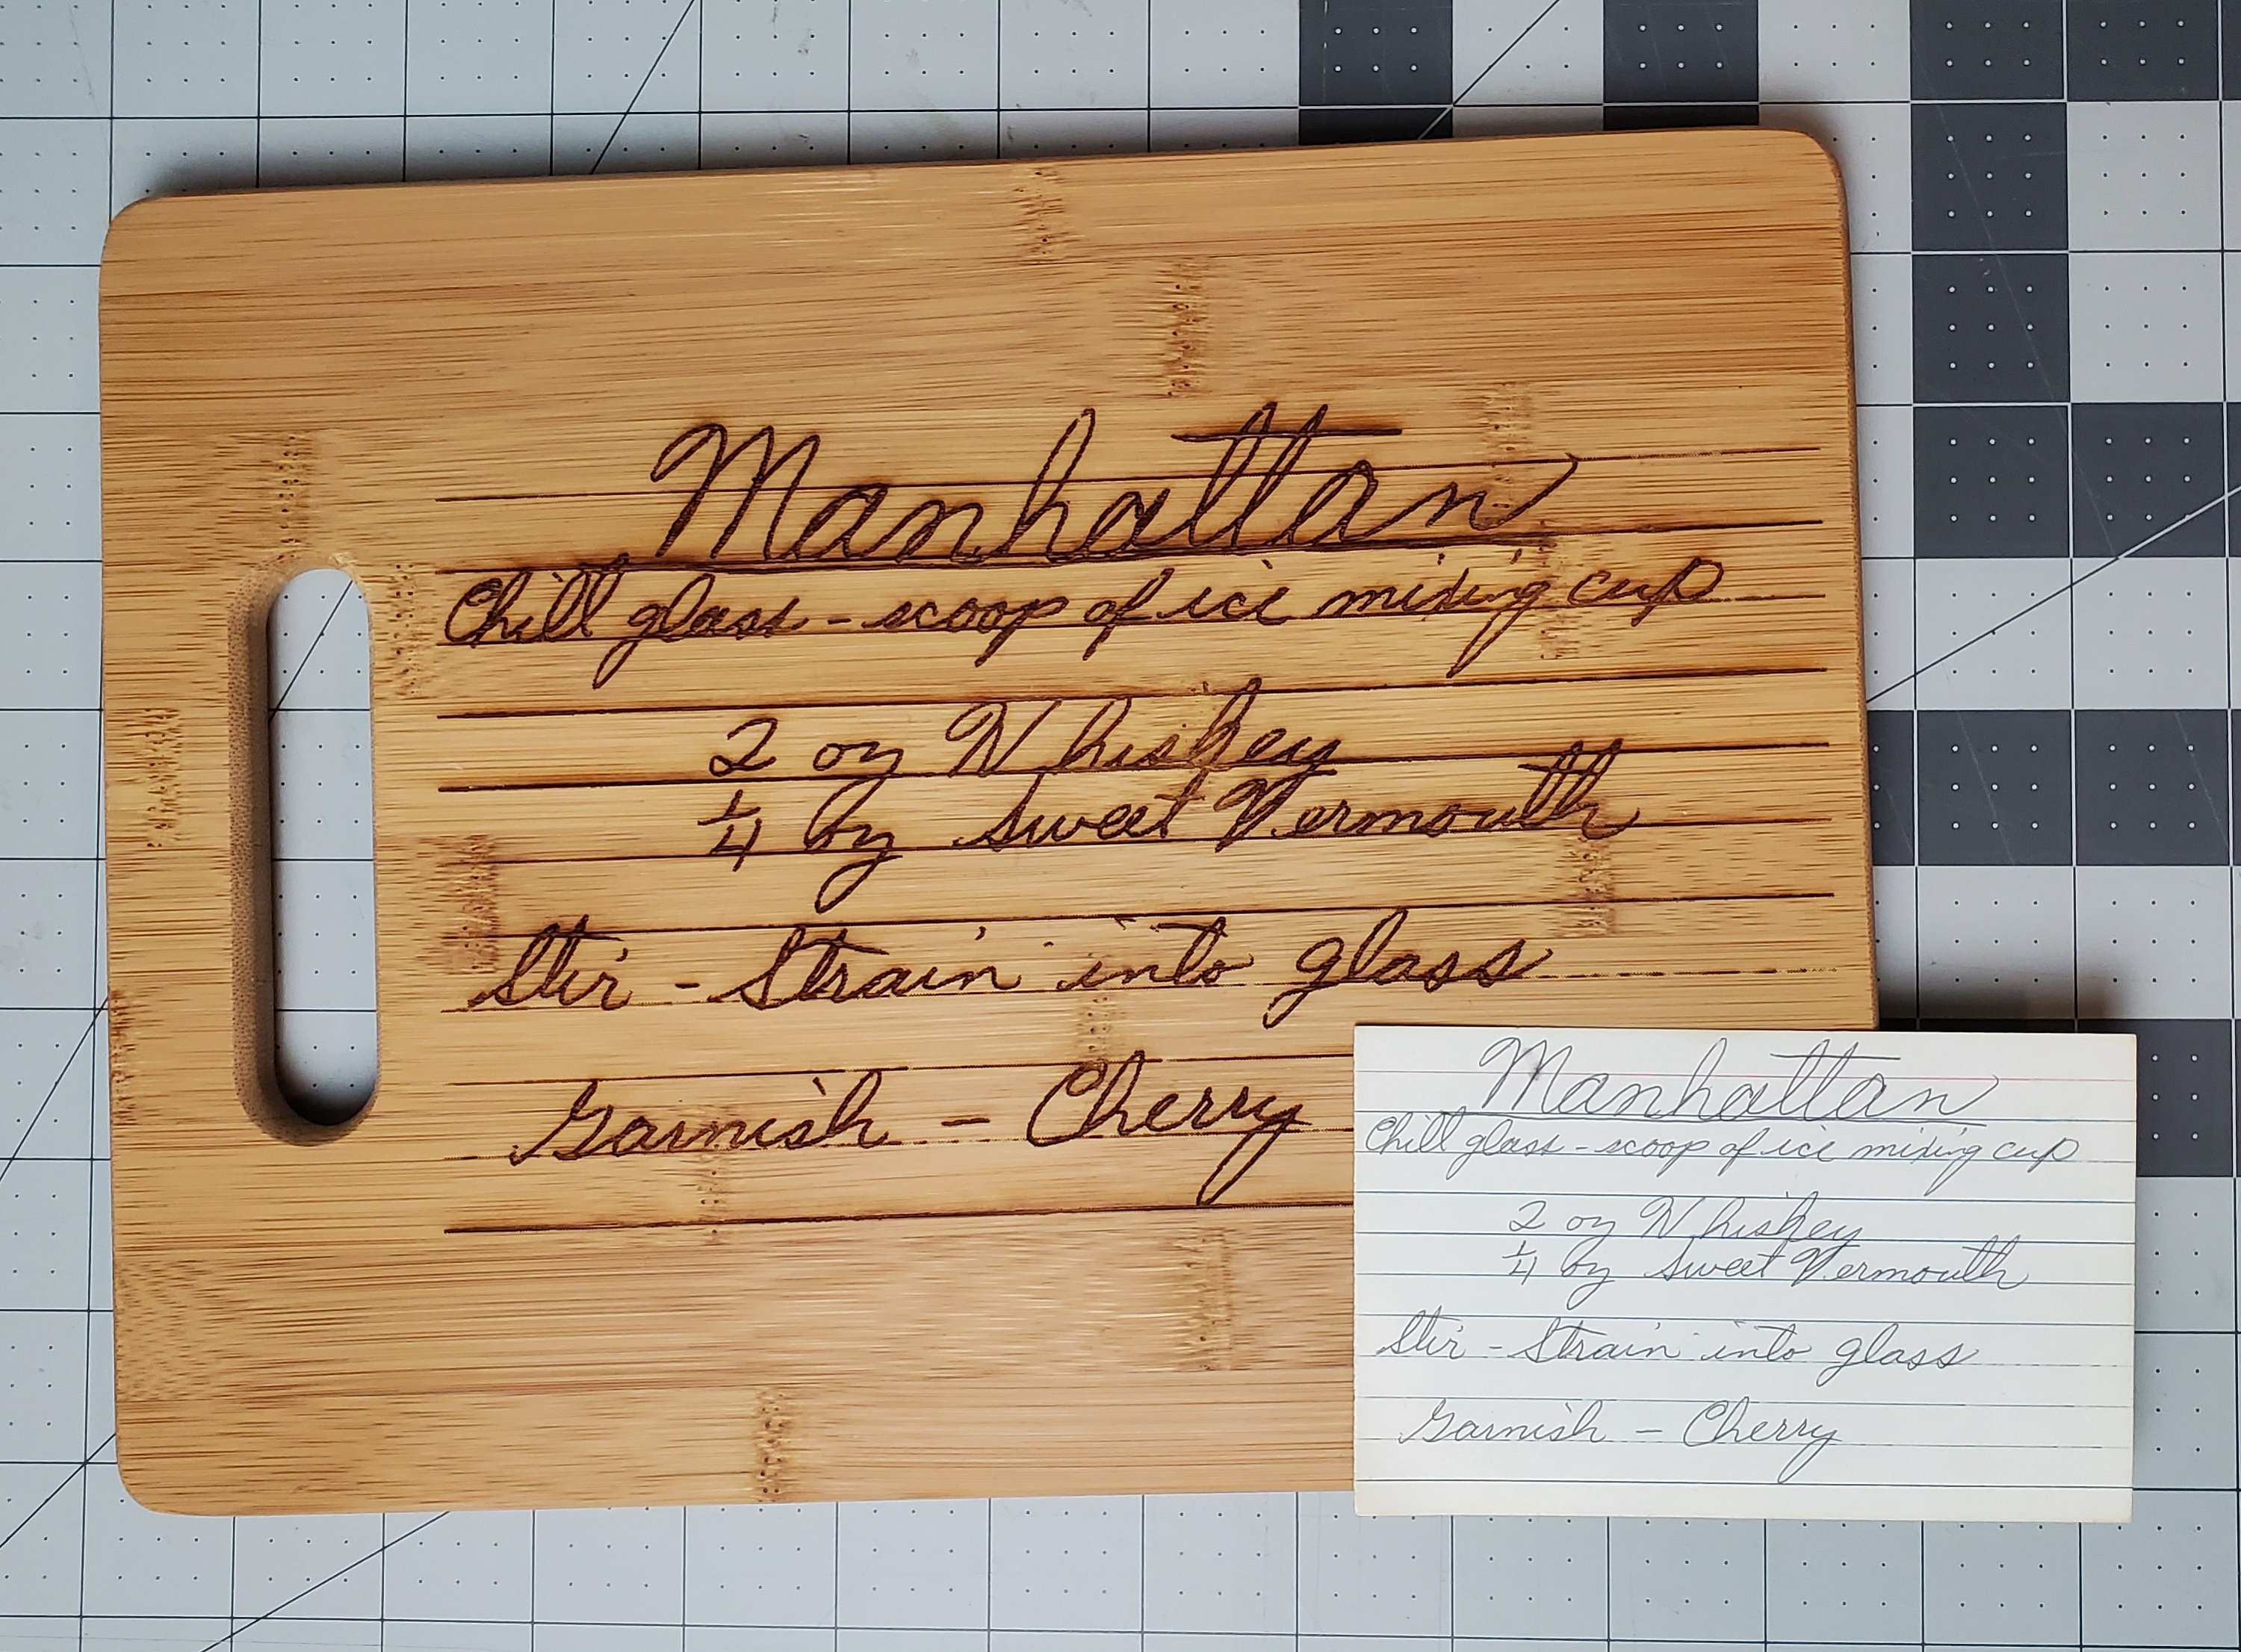 Manhattan
Chill glass - scoop of ice mixing cup
2 oz Whiskey
1/4 oz Sweet Vermouth
Stir - Strain into glass
Garnish - Cherry
Manhattan
Chill glass - scoop of ice mixing cup
2 oz Whiskey
1/4 oz Sweet Vermouth
Stir - Strain into glass
Garnish - Cherry